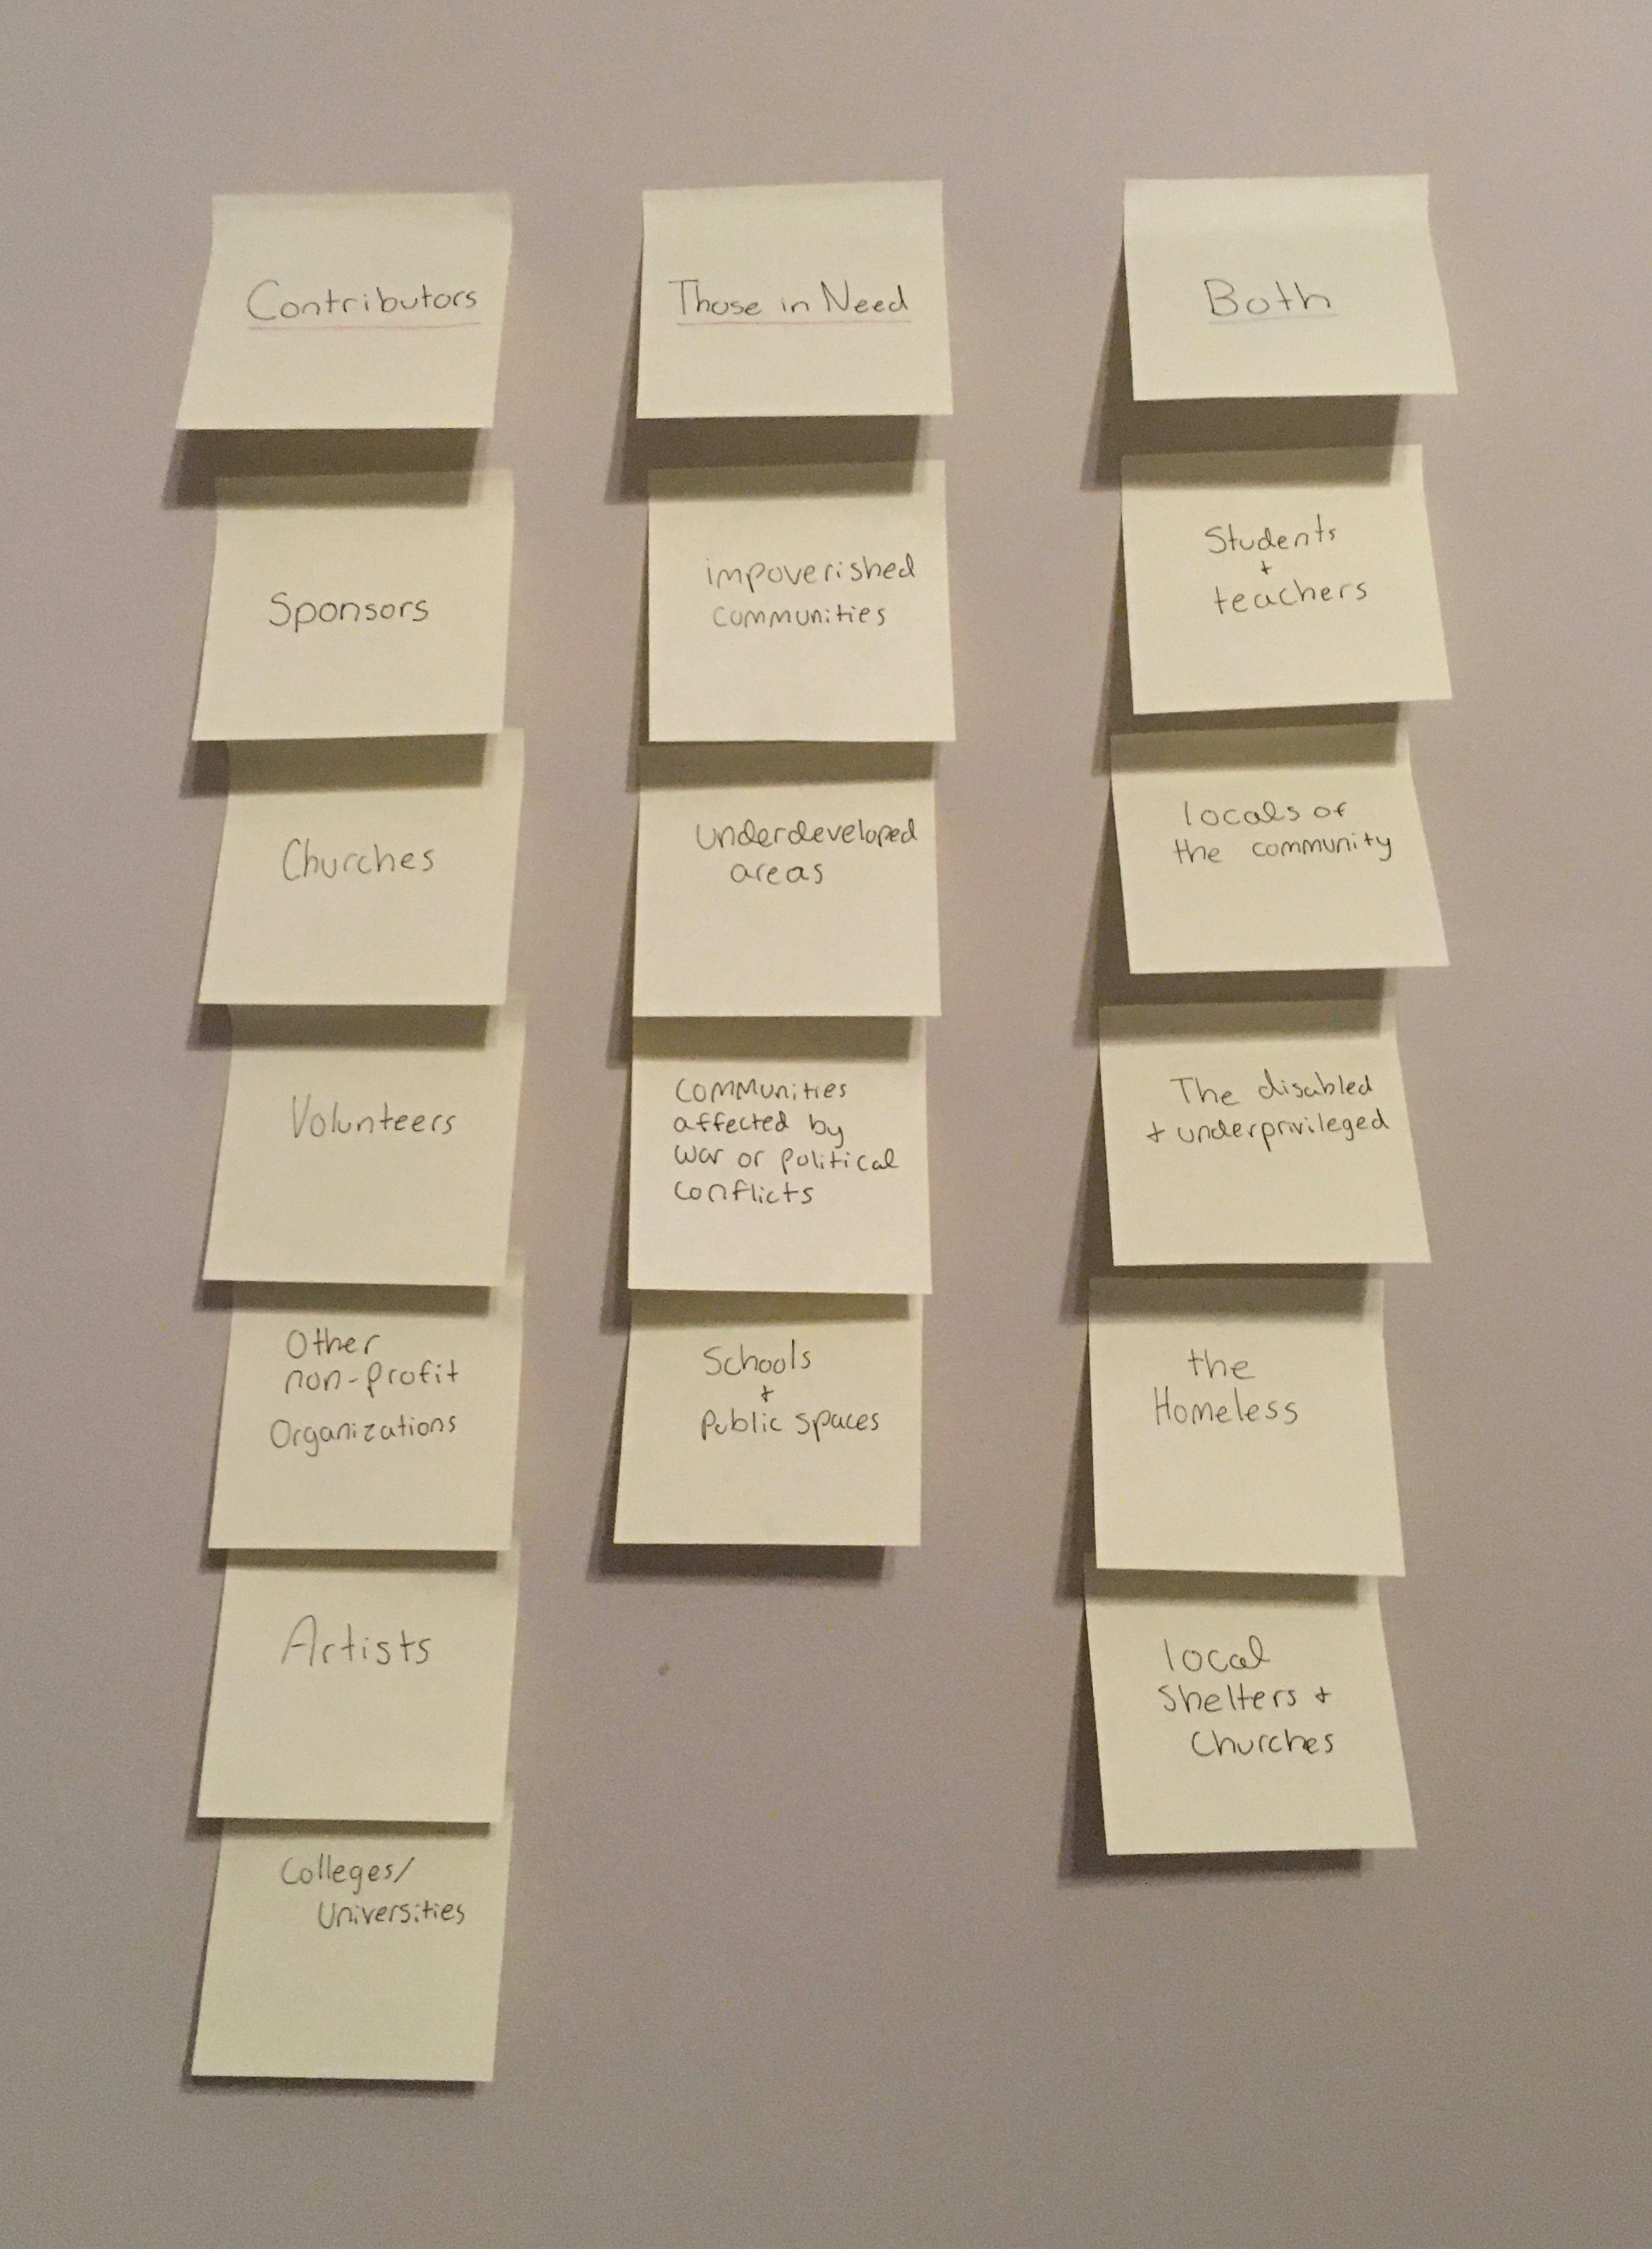 Contributors
Sponsors
Churches
Volunteers
Other
non-profit
Organizations
Artists
Colleges/
Universities
Those in Need
impoverished
communities
Underdeveloped
areas
Communities
affected by
war or political
conflicts
Schools
+
Public Spaces
Both
Students
+
teachers
locals of
the community
The disabled
+ underprivileged
the
Homeless
local
Shelters +
Churches